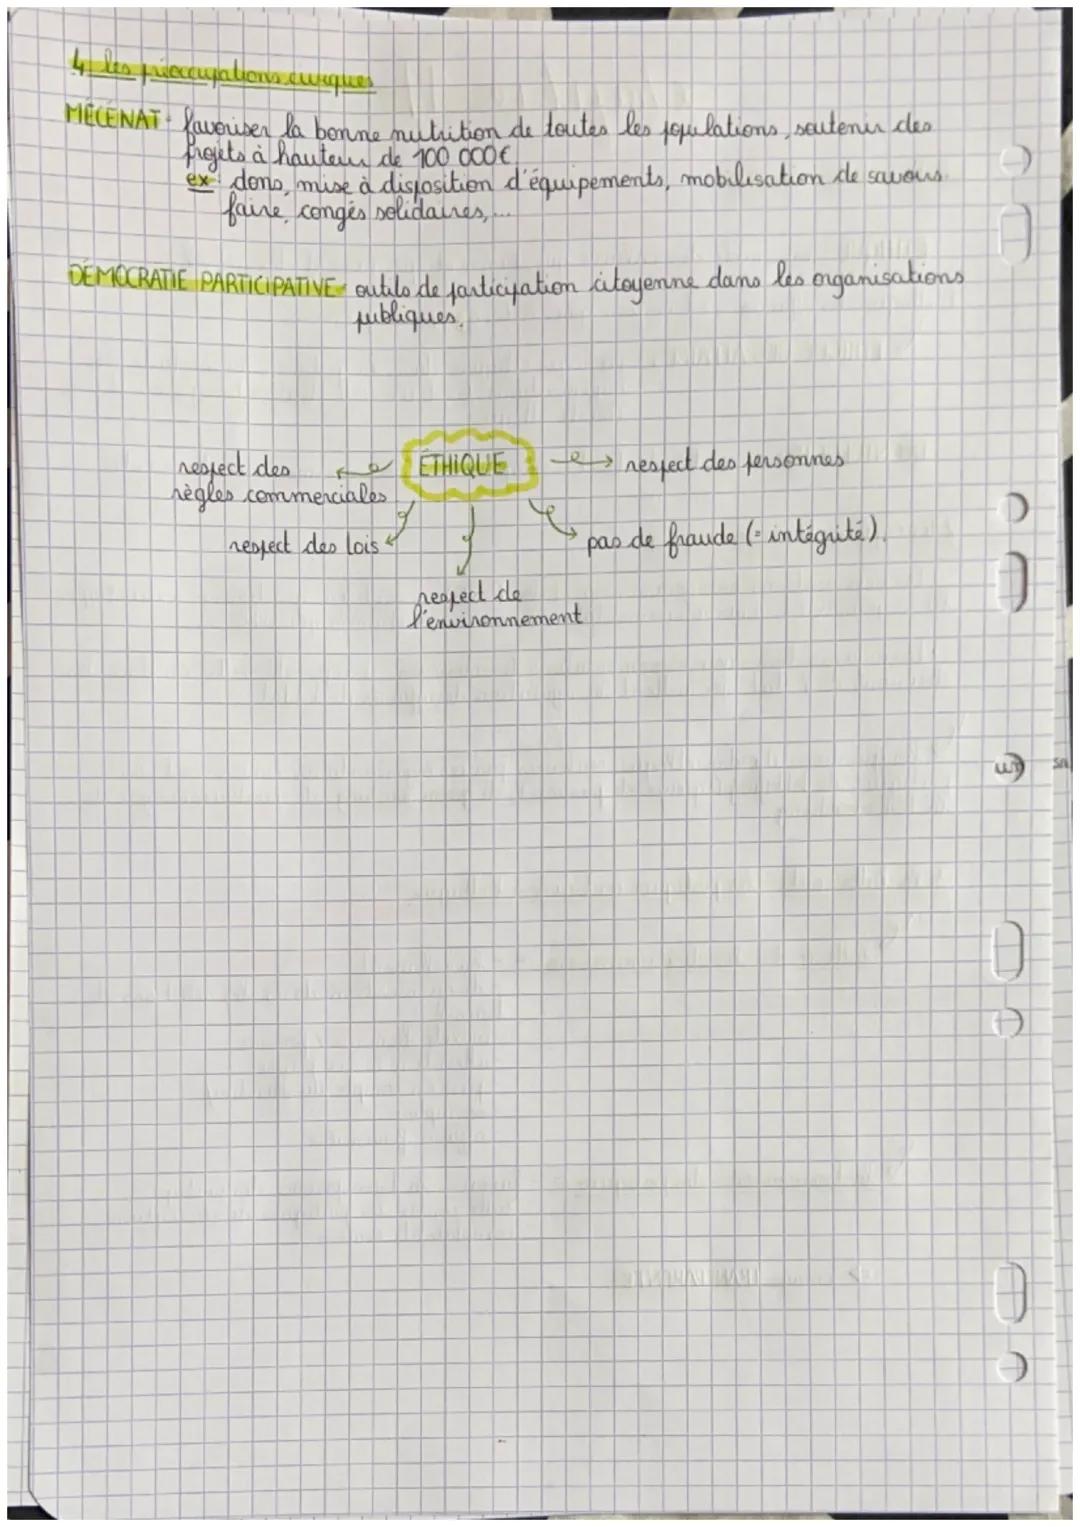 4_ les préoccupations civiques
MÉCÉNAT: favoriser la bonne nutrition de toutes les populations, soutenir des
projets à hauteur de 100 000€.
ex: dons, mise à disposition d'équipements, mobilisation de savoirs
faire, congés solidaires,...
DÉMOCRATIE PARTICIPATIVE: outils de participation citoyenne dans les organisations
publiques.
ÉTHIQUE
respect des
règles commerciales
respect des personnes
respect des lois
pas de fraude (= intégrité).
respect de
l'environnement